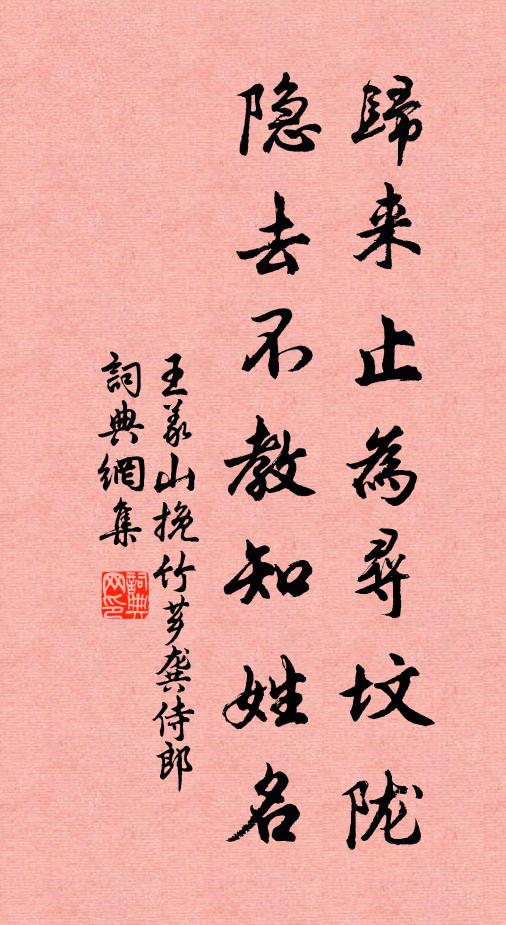 歸来止為尋坟陇
隐去不教知姓名
王義山挽竹芗龔侍郎
詞典網集
詞典网印